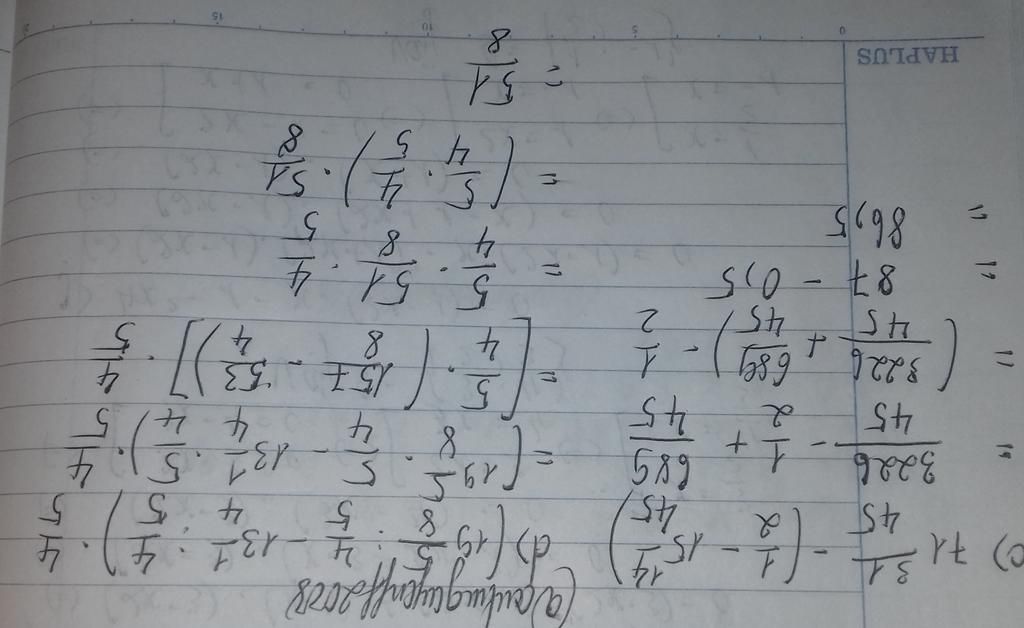 c) 71 31/45 - (1/2 - 15 14/45)
= 3226/45 - 1/2 + 689/45
= (3226/45 + 689/45) - 1/2
= 87 - 0,5
= 86,5
d) (19 5/8 : 4/5 - 13 1/4 : 4/5) . 4/5
= (19 5/8 . 5/4 - 13 1/4 . 5/4) . 4/5
= [5/4 . (157/8 - 53/4)] . 4/5
= 5/4 . 51/8 . 4/5
= (5/4 . 4/5) . 51/8
= 51/8
HAPLUS
0 5 10 15